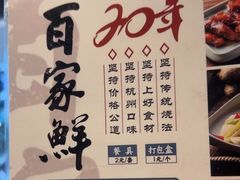 百家鲜
20年
坚持传统烧法
坚持上好食材
坚持杭州口味
坚持价格公道
餐具
2元/套
打包盒
1元/个